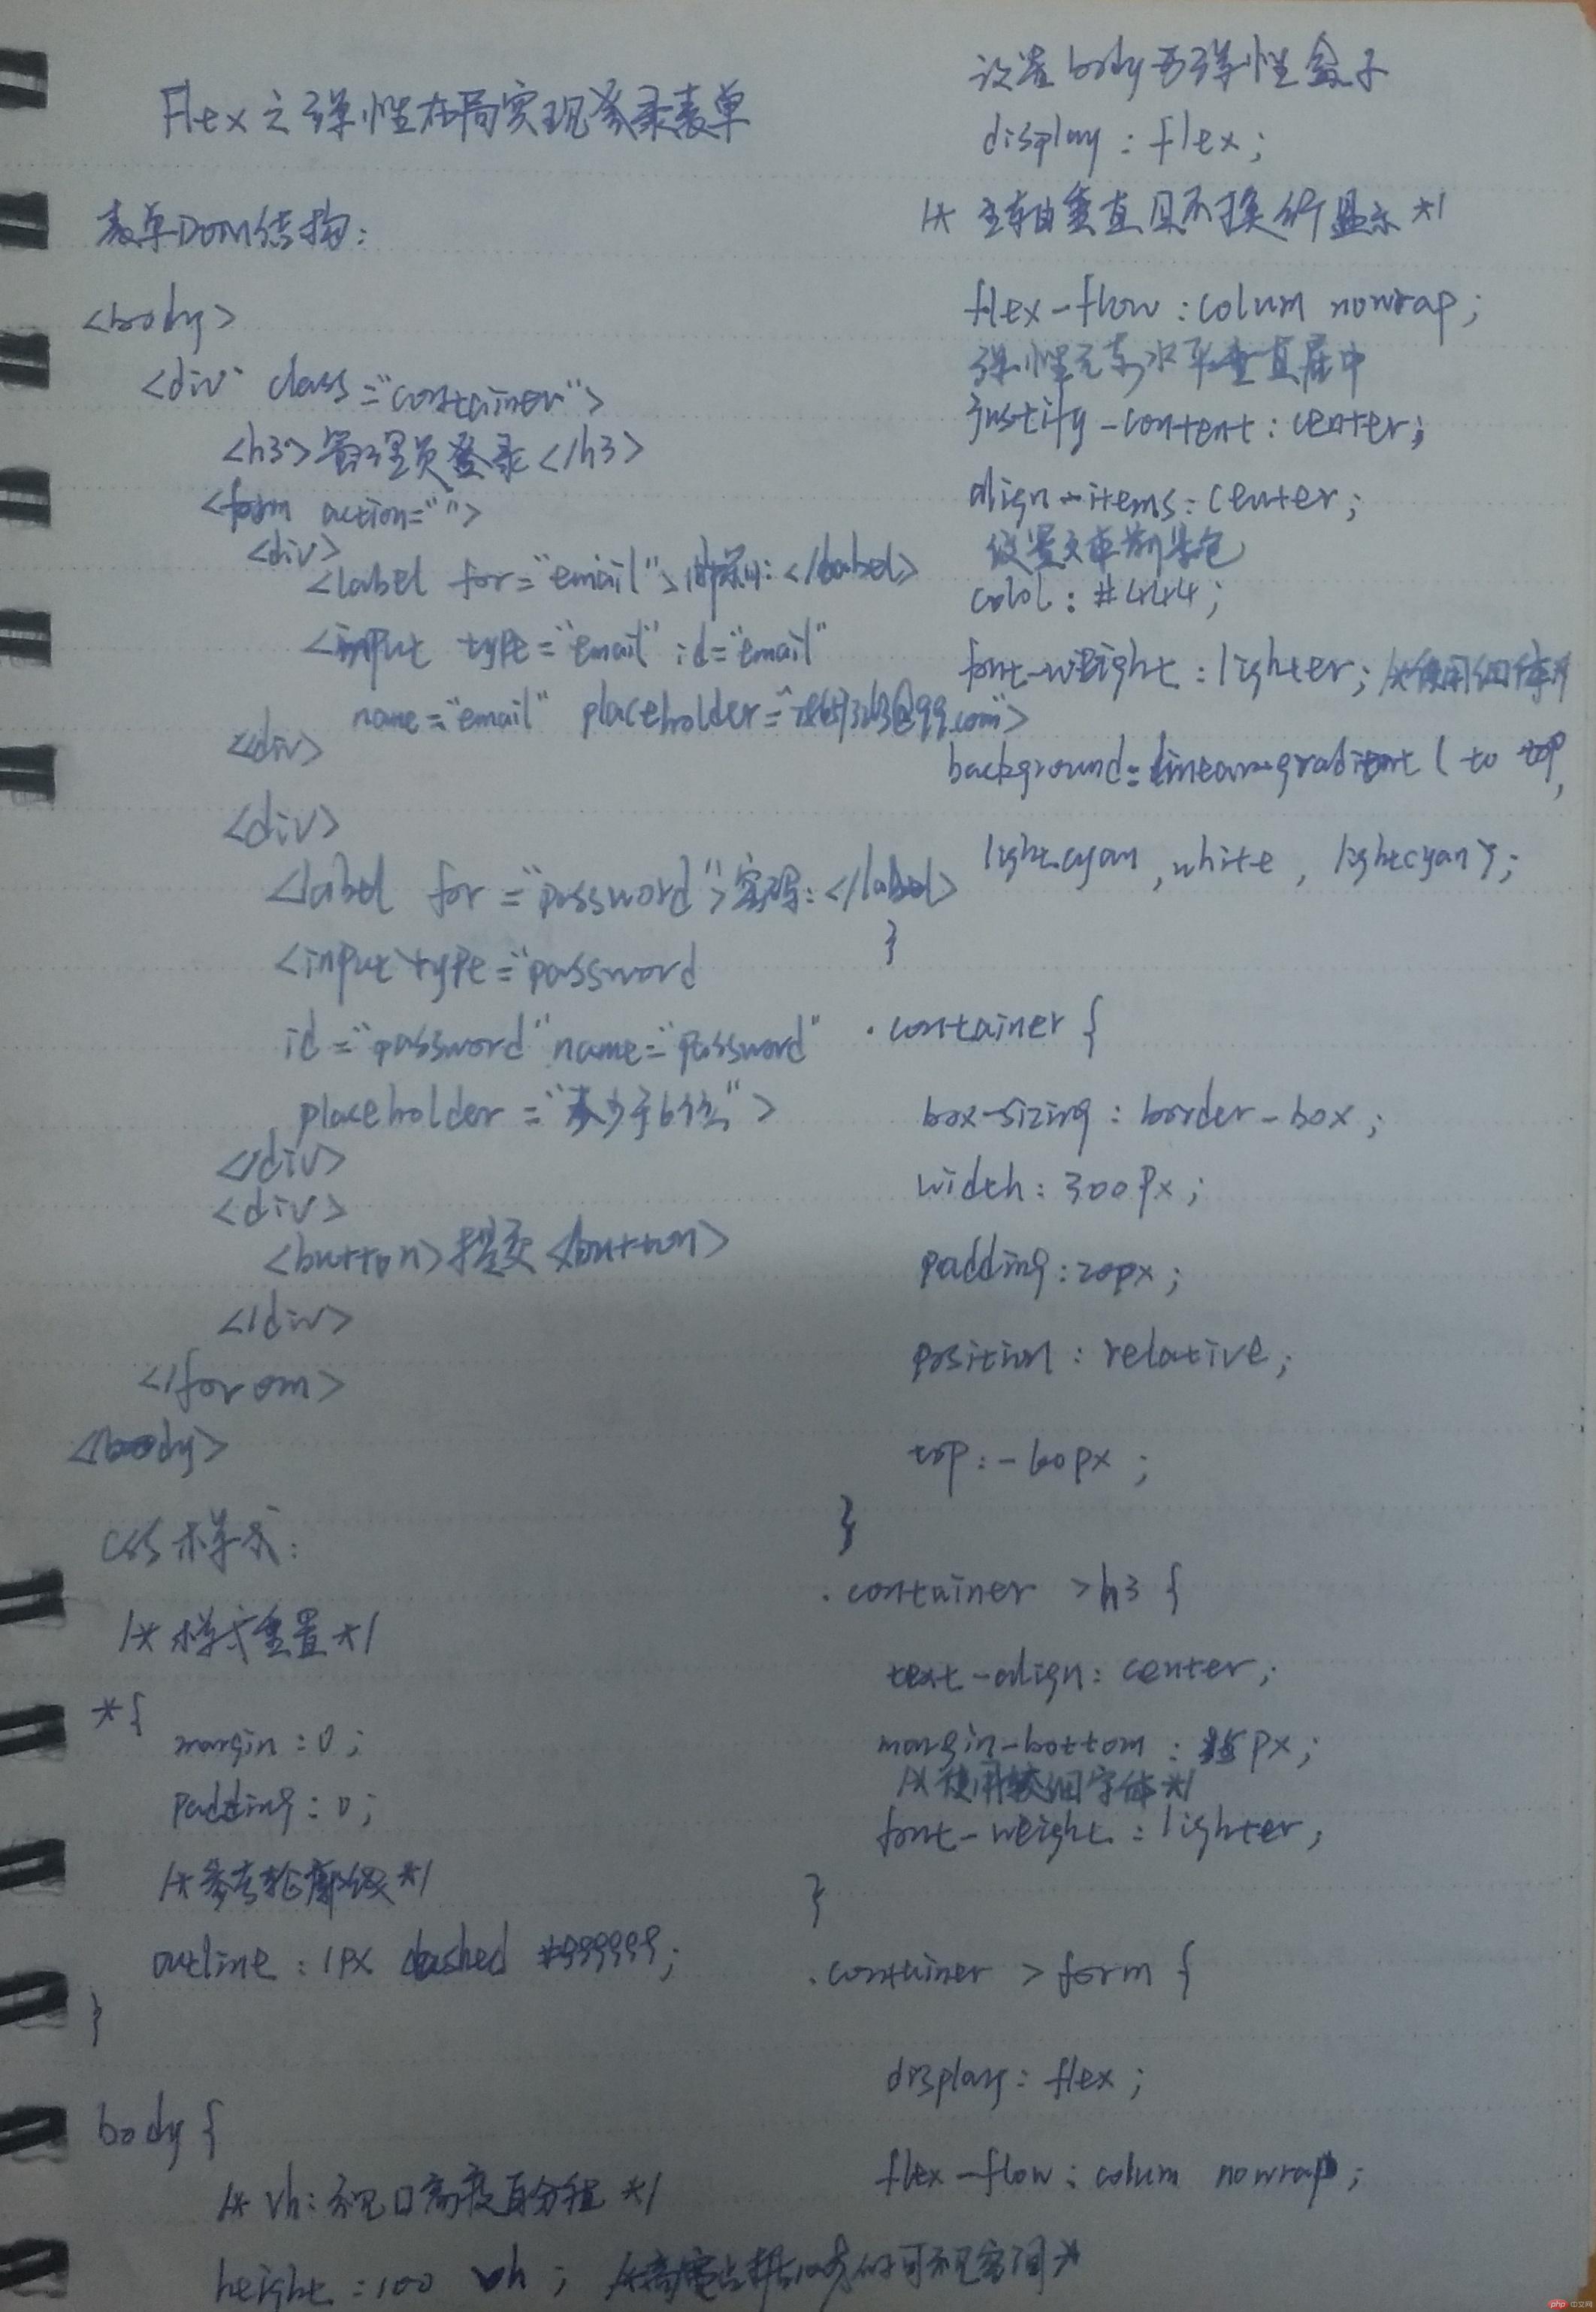 Flex之弹性布局实现登录表单
表单DOM结构:
<body>
<div class="container">
<h3>管理员登录</h3>
<form action="">
<div>
<label for="email">邮箱:</label>
<input type="email" id="email"
name="email" placeholder="@qq.com">
<div>
<div>
<label for="password">密码:</label>
<input type="password
id="password" name="password"
placeholder="不少于6位">
</div>
<div>
<button>提交<button>
</div>
</forom>
</body>
CSS样式:
/*样式重置*/
*{
margin:0;
padding:0;
/*参考轮廓线*/
outline:1px dashed #999999;
}
body{
/*vh:视口高度百分程*/
height:100vh; 的可视空间*
设置body为弹性盒子
display:flex;
/*主轴垂直且不换行显示*/
flex-flow:colum nowrap;
弹性元素水平垂直居中
justify-content:center;
align-items:center;
设置文本前景色
colol:#444;
font-weight:lighter;/*使用细体*/
background:linear-gradient(to top,
lightcyan,white,lightcyan);
}
.container{
box-sizing:border-box;
width:300px;
padding:20px;
position:relative;
top:-60px;
}
.container >h3{
text-align:center;
margin-bottom:15px;
/*使用较细字体*/
font-weight:lighter;
}
.container >form{
display:flex;
flex-flow:colum nowrap;
php 中文网